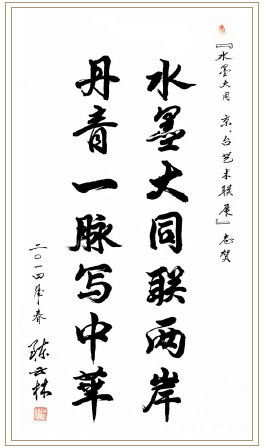 『水墨大同 京、台艺术联展』志贺
水墨大同联两岸
丹青一脉写中华
二〇一四年春 陈云林